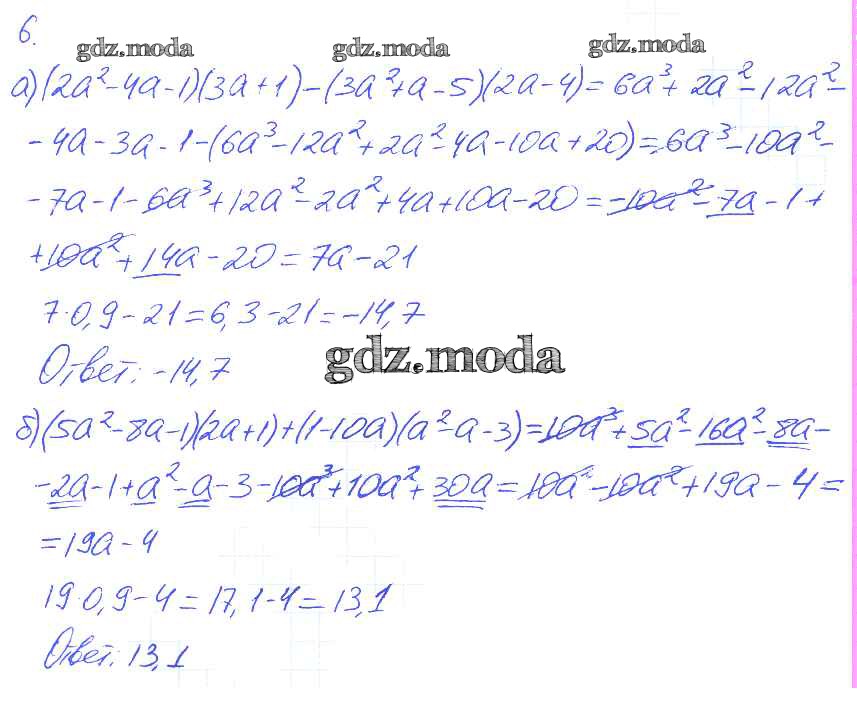 6.
gdz.moda gdz.moda gdz.moda
а) (2a²-4a-1)(3a+1)-(3a²+a-5)(2a-4)=6a³+2a²-12a²-
-4a-3a-1-(6a³-12a²+2a²-4a-10a+20)=6a³-10a²-
-7a-1-6a³+12a²-2a²+4a+10a-20=-10a²-7a-1+
+10a²+14a-20=7a-21
7·0,9-21=6,3-21=-14,7
Ответ: -14,7
gdz.moda
б) (5a²-8a-1)(2a+1)+(1-10a)(a²-a-3)=10a³+5a²-16a²-8a-
-2a-1+a²-a-3-10a³+10a²+30a=10a²-10a²+19a-4=
=19a-4
19·0,9-4=17,1-4=13,1
Ответ: 13,1